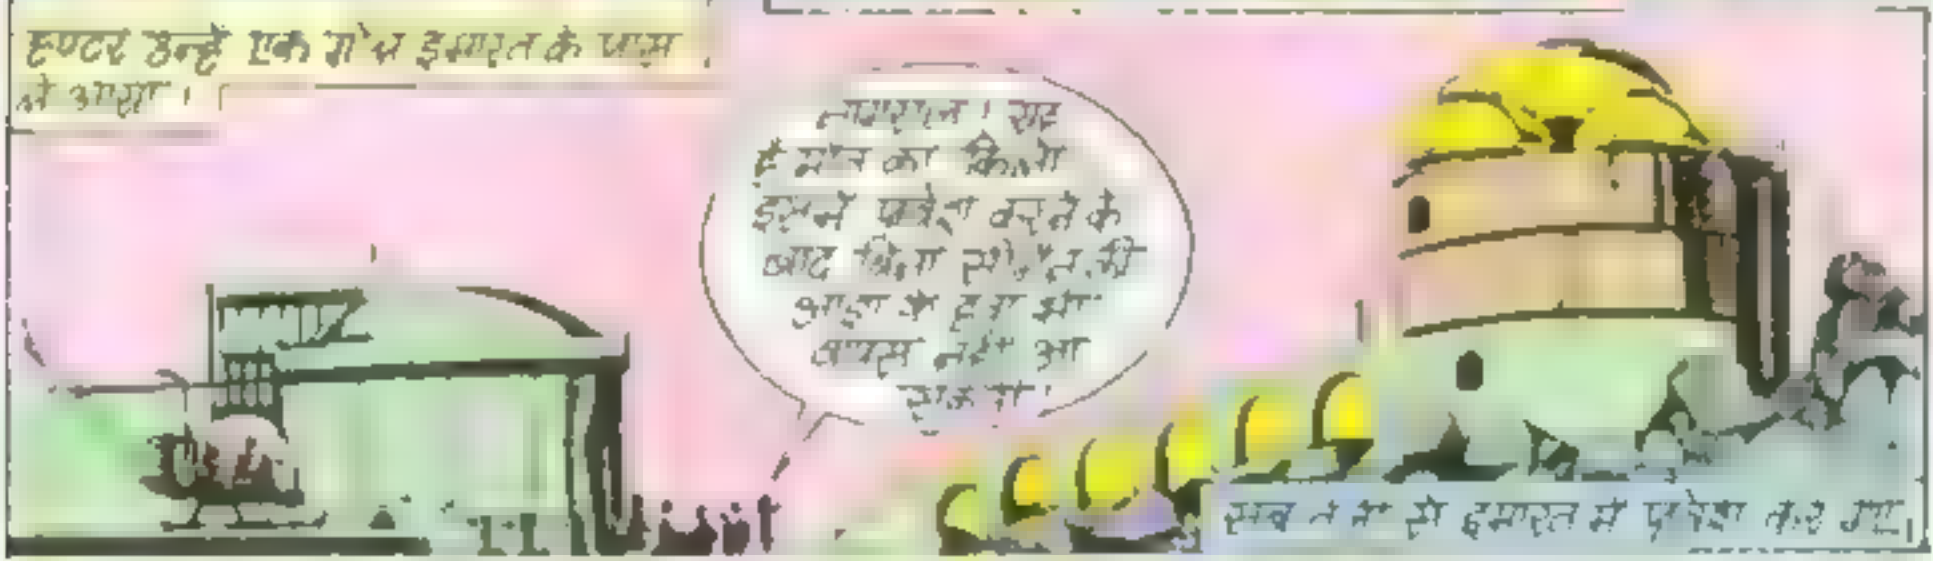 हण्टर उन्हें एक इमारत के पास
ले आया।
सावधान। यह
है मौत का किला
इसमें प्रवेश करने के
बाद बिना की
आज्ञा के हवा भी
वापस नहीं आ
सकती।
सब इमारत में प्रवेश कर गए।